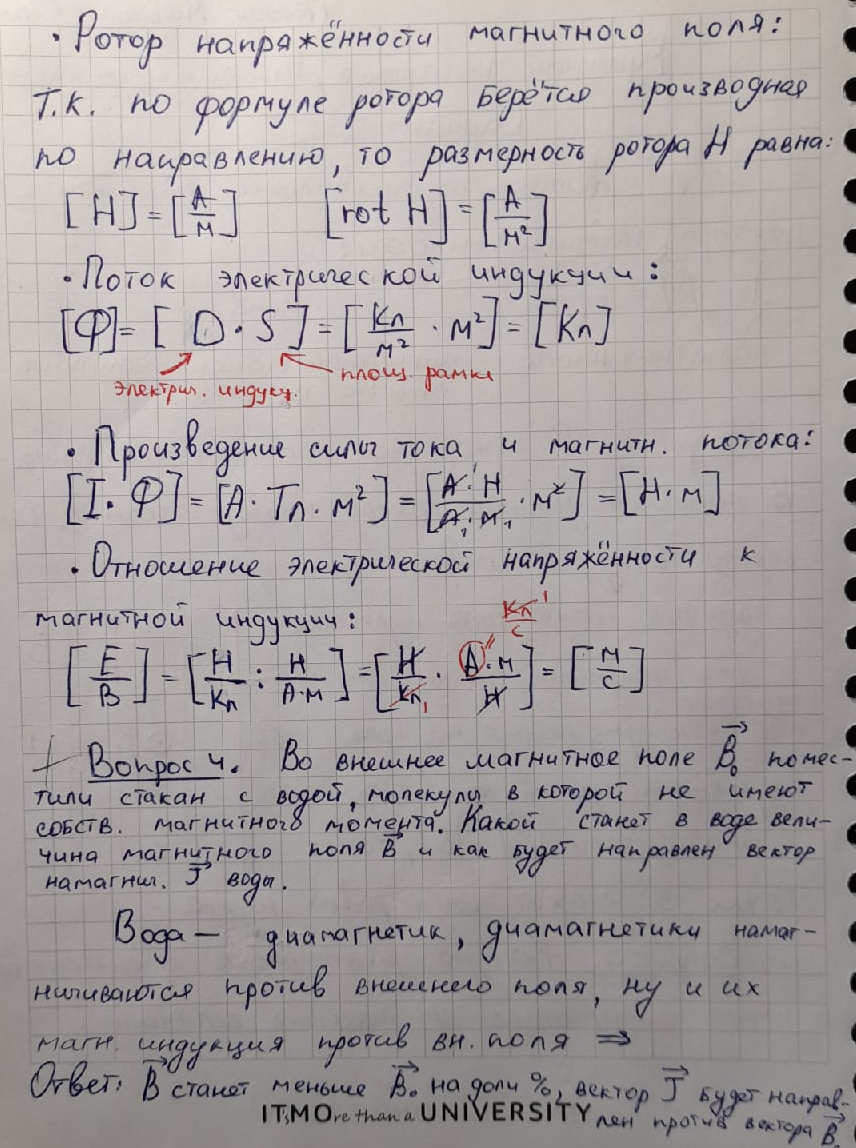 • Ротор напряжённости магнитного поля:
Т.к. по формуле ротора берётся производная
по направлению, то размерность ротора H равна:
[H] = [А/м] [rot H] = [А/м²]
• Поток электрической индукции:
[Ф] = [D · S] = [Кл/м² · м²] = [Кл]
электрич. индукц. площ. рамки
• Произведение силы тока и магнитн. потока:
[I · Ф] = [А · Тл · м²] = [А · Н/А · м · м²] = [Н · м]
• Отношение электрической напряжённости к
магнитной индукции:
Кл/с
[E/B] = [Н/Кл : Н/А·м] = [Н/Кл · А·м/Н] = [м/с]
+ Вопрос 4. Во внешнее магнитное поле B⃗₀ помес-
тили стакан с водой, молекулы в которой не имеют
собств. магнитного момента. Какой станет в воде вели-
чина магнитного поля B⃗ и как будет направлен вектор
намагнич. J⃗ воды.
Вода — диамагнетик, диамагнетики намаг-
ничиваются против внешнего поля, ну и их
магн. индукция против вн. поля ⇒
Ответ: B⃗ станет меньше B⃗₀ на доли %, вектор J⃗ будет направ-
лен против вектора B⃗₀
ITsMOre than a UNIVERSITY